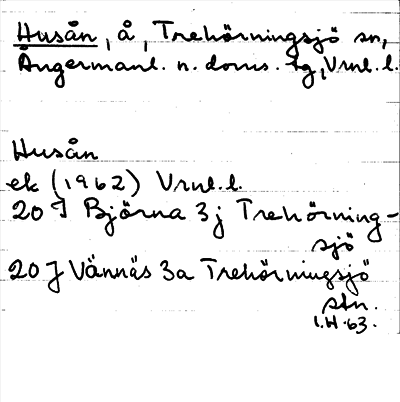 Husån, å, Trehörningsjö sn,
Ångermanl. n. doms. tg, Vrnl. l.
Husån
ek (1962) Vrnl. l.
20 I Björna 3j Trehörning-
sjö
20 J Vännäs 3a Trehörningsjö
stn.
1.H.63.